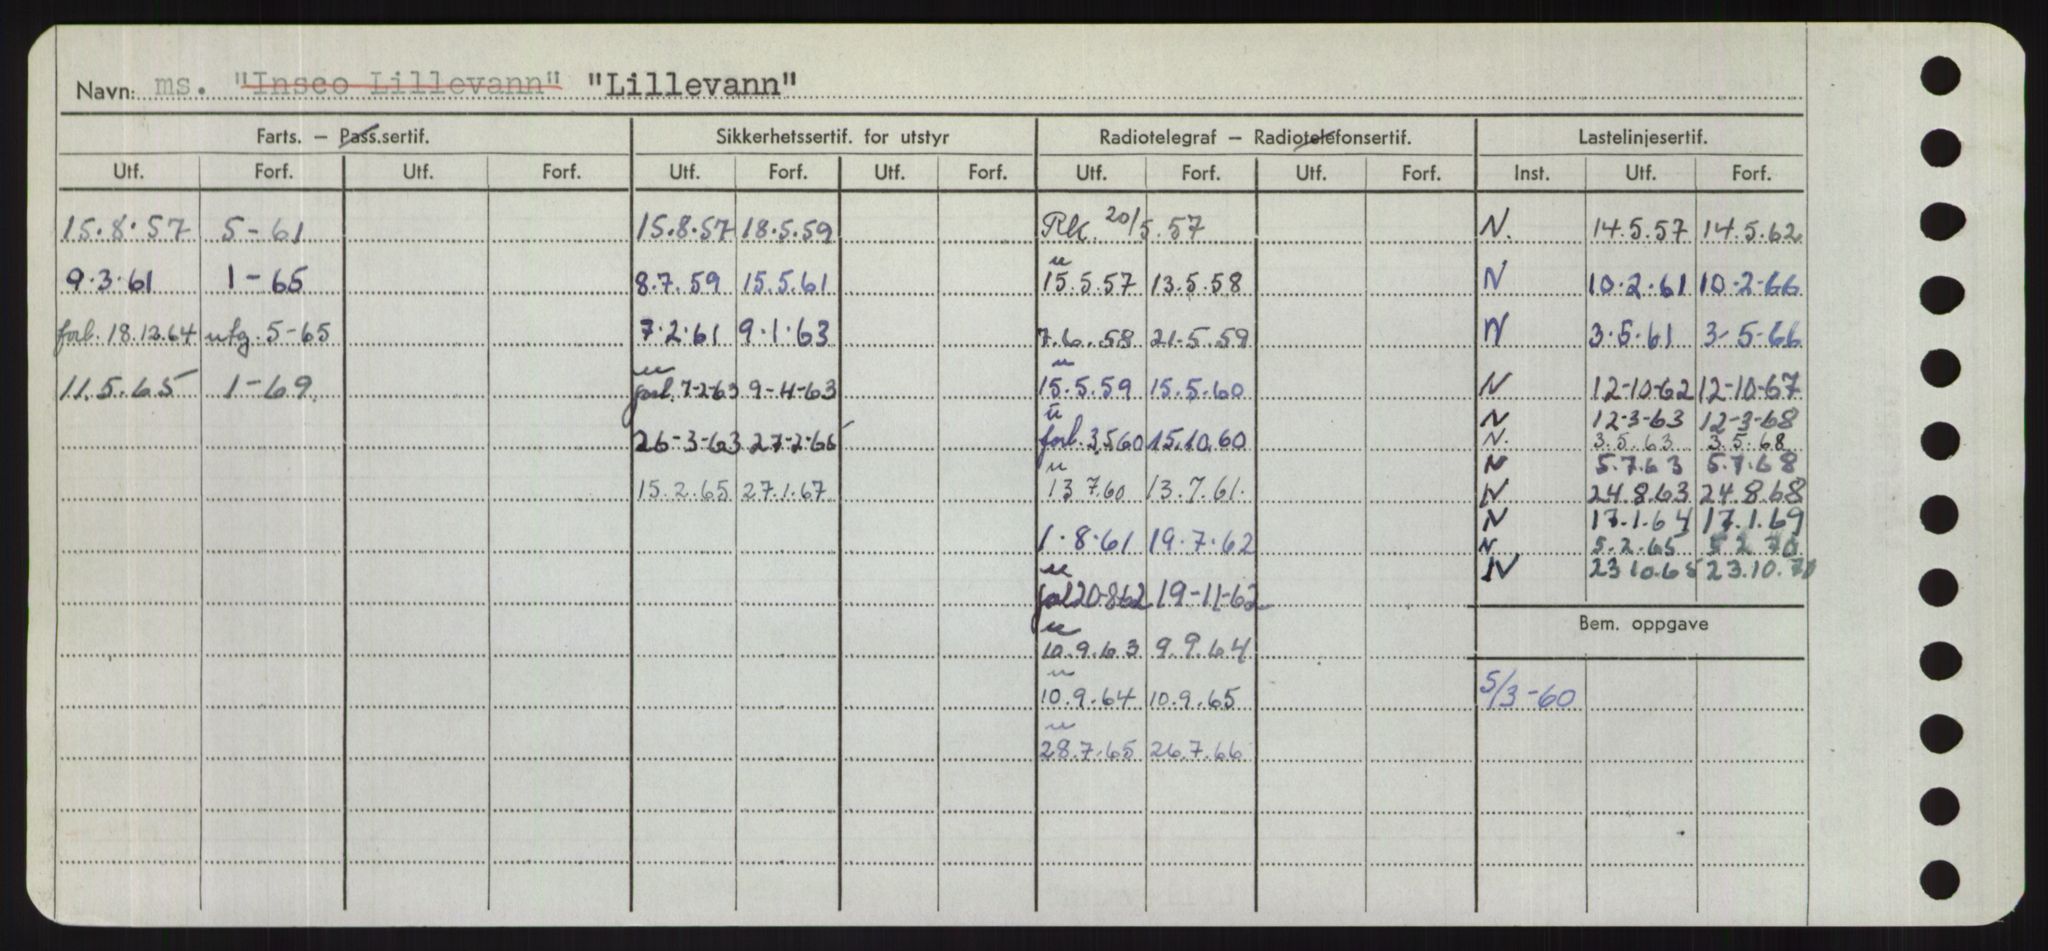 Navn: ms. "Insco Lillevann" "Lillevann"
Farts. — Pass.sertif. Sikkerhetssertif. for utstyr Radiotelegraf — Radiotelefonsertif. Lastelinjesertif.
Utf. Forf. Utf. Forf. Utf. Forf. Utf. Forf. Utf. Forf. Utf. Forf. Inst. Utf. Forf.
15.8.57 5-61 15.8.57 18.5.59 Rk. 20/5.57 N. 14.5.57 14.5.62
9.3.61 1-65 8.7.59 15.5.61 15.5.57 13.5.58 N 10.2.61 10-2-66
forl. 18.12.64 utg. 5-65 7.2.61 9.1.63 7.6.58 21.5.59 N 3.5.61 3-5-66
11.5.65 1-69 forl. 7-2-63 9-4-63 15.5.59 15.5.60 N 12-10-62 12-10-67
N 12-3-63 12-3-68
26-3-63 27-2-65 forl. 3.5.60 15.10.60 N. 3.5.63 3.5.68
N 5.7.63 5.7.68
15.2.65 27.1.67 13.7.60 13.7.61. N 24.8.63 24.8.68
N 17.1.64 17.1.69
1.8.61 19.7.62 N 5.2.65 5 2 70
N 23 10.65 23.10.70
forl 20-8-62 19-11-62
Bem. oppgave
10.9.63 9.9.64
10.9.64 10.9.65 5/3-60
28.7.65 26.7.66